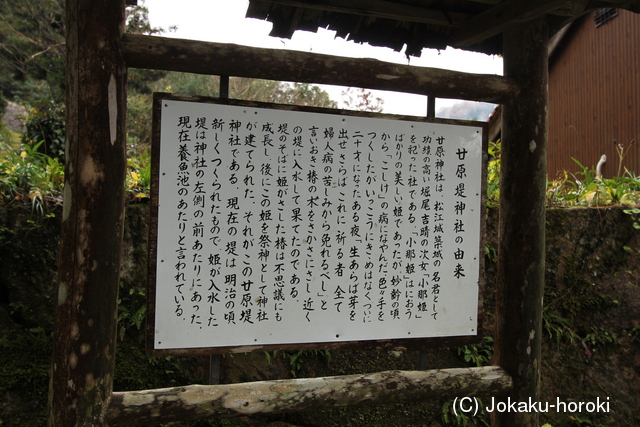 廿原堤神社の由来
廿原神社は、松江城築城の名君として
功績の高い堀尾吉晴の次女「小那姫」
を祀った社である。「小那姫」はにおう
ばかりの美しい姫であったが、妙齢の頃
から「こしけ」の病になやんだ。色々手を
つくしたがいっこうにきゝめはなくついに
二十才になったある夜「生あらば芽を
出せさらばこれに祈る者、全て
婦人病の苦しみから免れるべし」と
言いおき、椿の木をさかさにさし、近く
の堤に入水して果てたのである。
堤のそばに姫がさした椿は不思議にも
成長し、後にこの姫を祭神として神社
が建てられた。それがこの廿原堤
神社である。現在の堤は明治の頃、
新しくつくられたもので、姫が入水した
堤は神社の左側の前あたりにあった、
現在養魚池のあたりと言われている。
(C) Jokaku-horoki